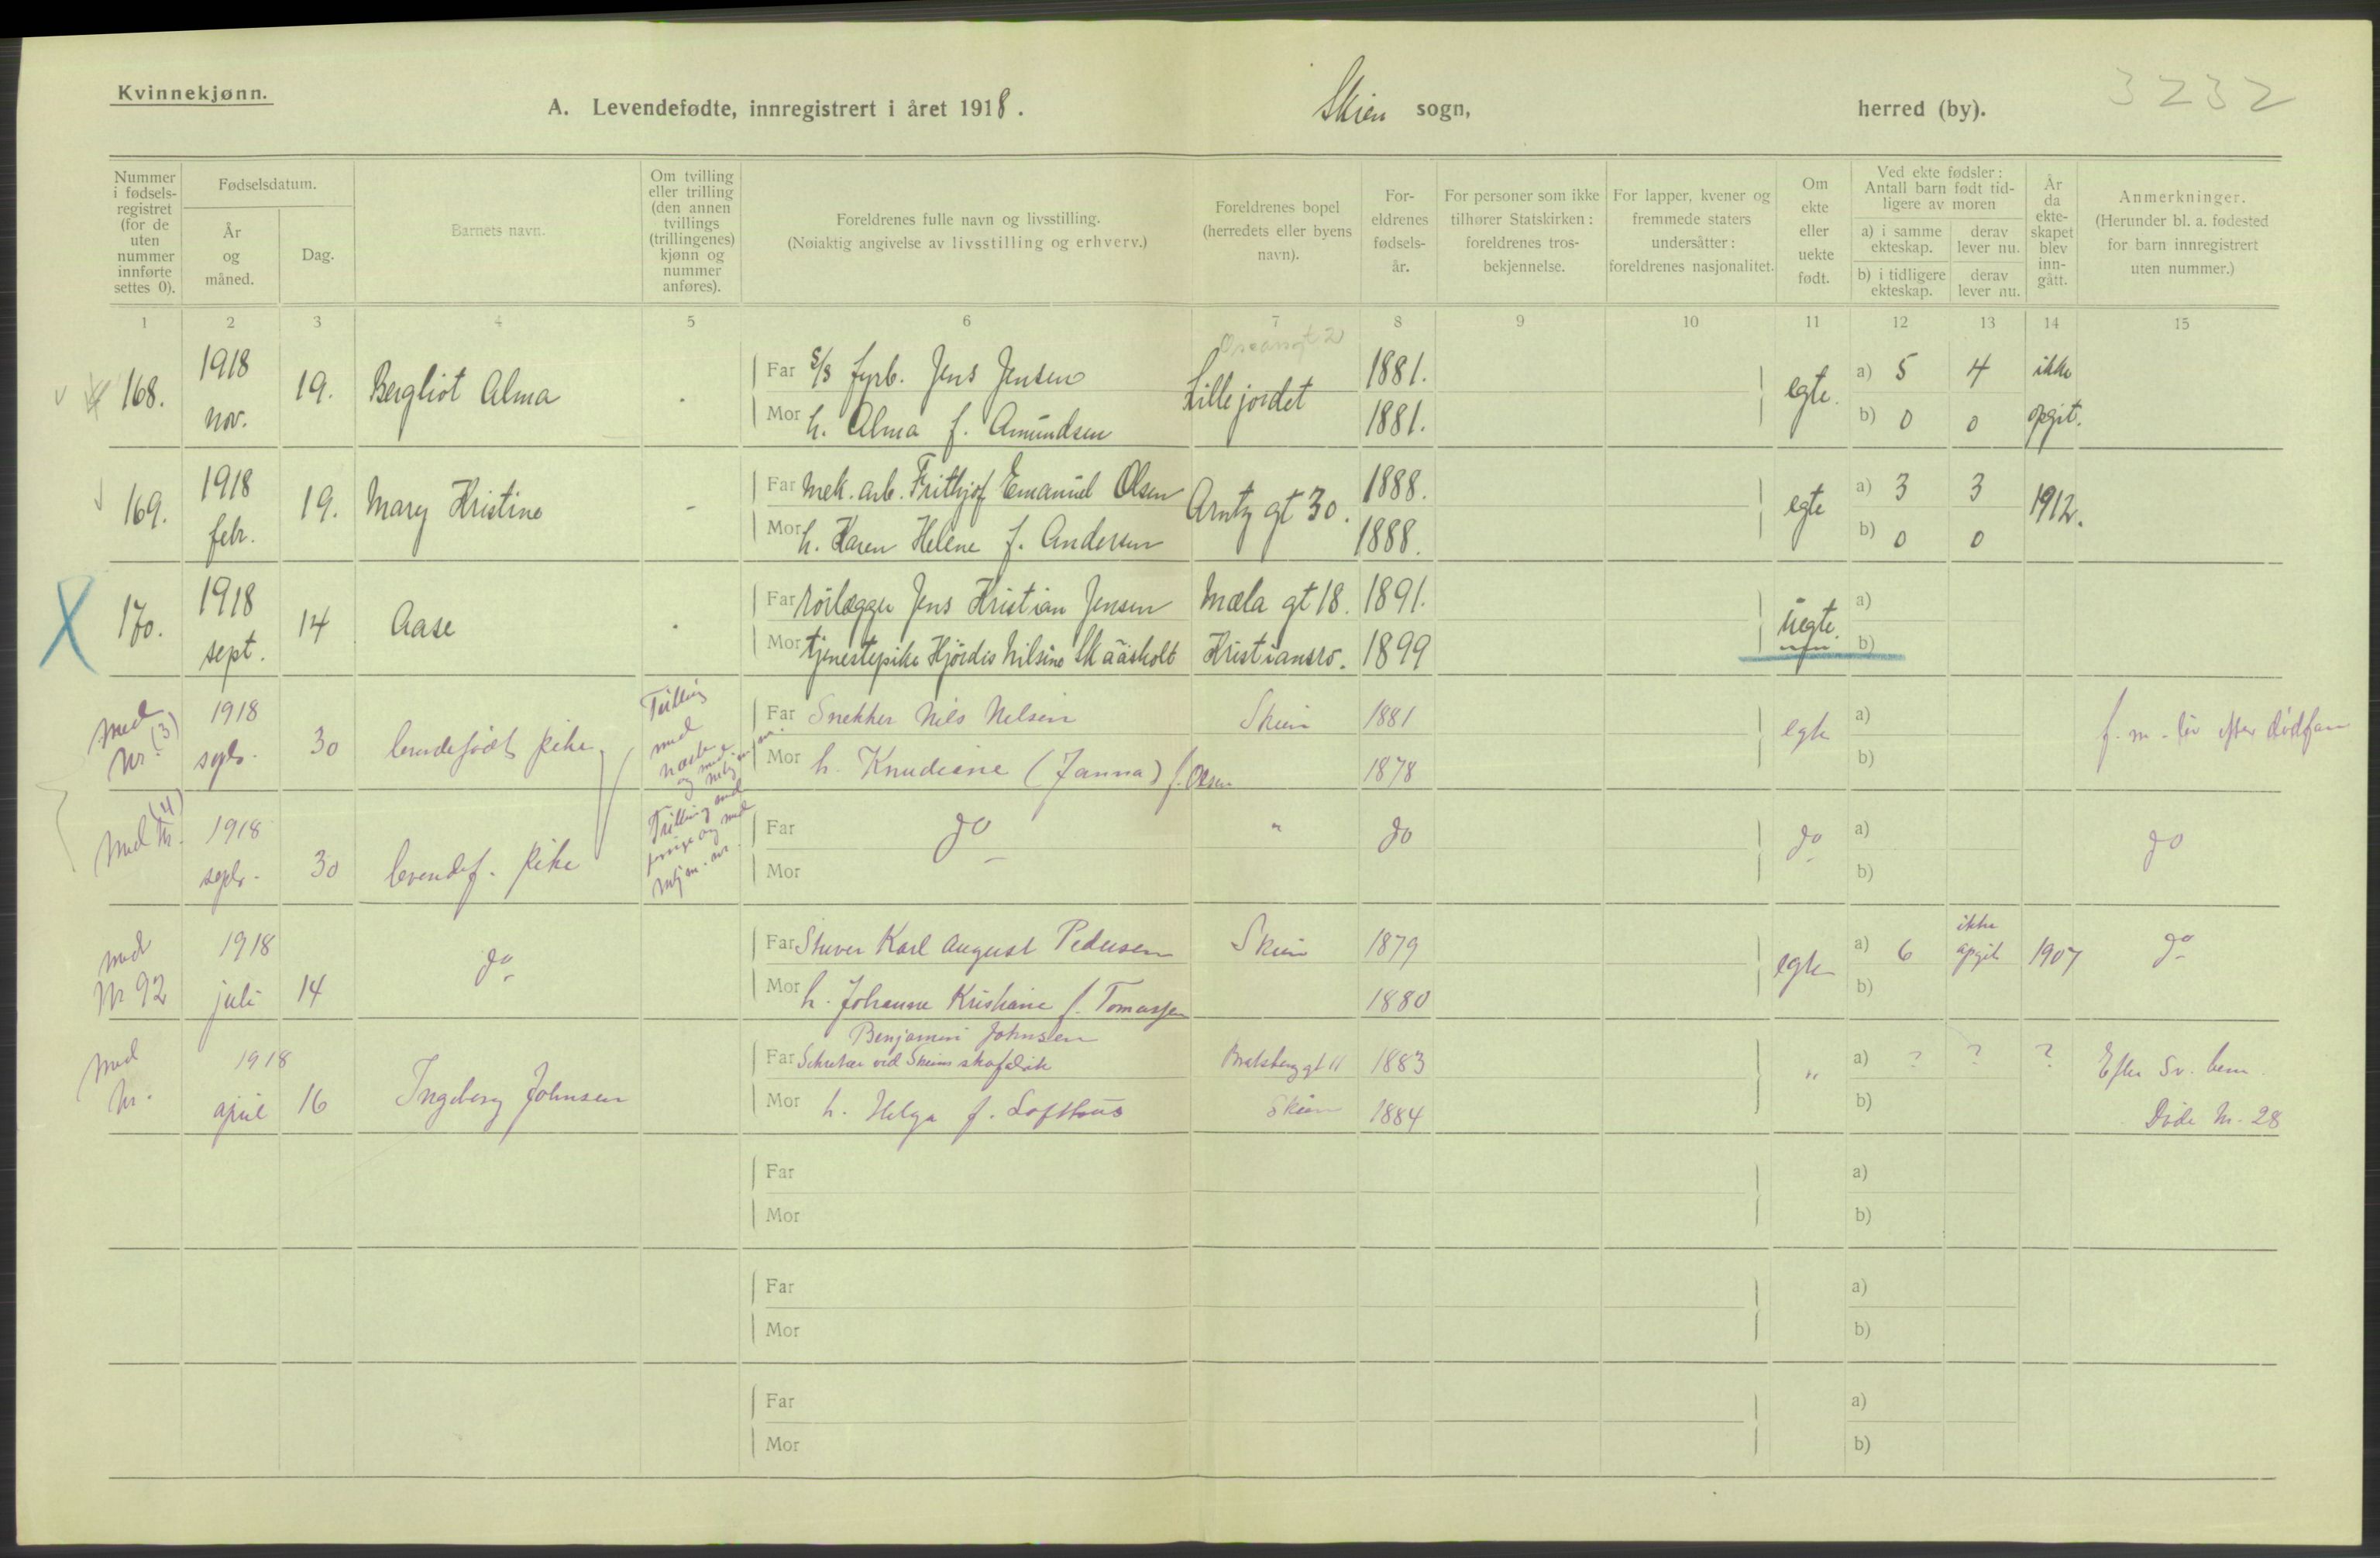 Kvinnekjønn.
A. Levendefødte, innregistrert i året 1918.
Skien sogn,
herred (by).
3232
Nummer i fødsels-registret (for de uten nummer innførte settes 0).
Fødselsdatum.
År og måned.
Dag.
Barnets navn.
Om tvilling eller trilling (den annen tvillings (trillingenes) kjønn og nummer anføres).
Foreldrenes fulle navn og livsstilling.
(Nøiaktig angivelse av livsstilling og erhverv.)
Foreldrenes bopel (herredets eller byens navn).
For-eldrenes fødsels-år.
For personer som ikke tilhører Statskirken: foreldrenes tros-bekjennelse.
For lapper, kvener og fremmede staters undersåtter: foreldrenes nasjonalitet.
Om ekte eller uekte født.
Ved ekte fødsler: Antall barn født tid-ligere av moren
a) i samme ekteskap.
derav lever nu.
b) i tidligere ekteskap.
derav lever nu.
År da ekte-skapet blev inn-gått.
Anmerkninger.
(Herunder bl. a. fødested for barn innregistrert uten nummer.)
1 2 3 4 5 6 7 8 9 10 11 12 13 14 15
168. 1918 nov. 19. Bergliot Alma
Far S/S fyrb. Jens Jensen Lillejordet 1881. egte. a) 5 4 ikke
Mor h. Alma f. Amundsen 1881. b) 0 0 opgit.
169. 1918 febr. 19. Mary Kristine -
Far Mek. arb. Frithjof Emanuel Olsen Arntz gt 30. 1888. egte a) 3 3 1912.
Mor h. Karen Helene f. Andersen 1888. b) 0 0
X 170. 1918 sept. 14 Aase
Far rörlægger Jens Kristian Jensen Mæla gt 18. 1891. uegte. a)
Mor tjenestepike Hjördis Nilsine Skaasholt Kristiansro. 1899 b)
Med Nr. (3) 1918 septr. 30 levendefödt pike Trilling med næste og med
Far Snekker Nils Nilsen Skien 1881 egte a) f. m. liv efter dödfan
Mor h. Knudsine (Janna) f. Olsen 1878 b)
Med Nr. (4) 1918 septr. 30 levendef. pike Trilling med forrige og med
Far do " do do a) do
Mor b)
Med Nr 92 1918 juli 14 do
Far Stuver Karl August Pedersen Skien 1879 egte a) 6 ikke opgit 1907 do
Mor h. Johanne Kristiane f. Tomassen 1880 b)
Med Nr. 1918 april 16 Ingeborg Johnsen
Benjamin Johnsen
Far Sekretær ved Skiens skofabrik Bratsberggt 11 1883 " a) ? ? ? Efter Sv. bem.
Mor h. Helga f. Lofthus Skien 1884 b) Döde Nr. 28
Far a)
Mor b)
Far a)
Mor b)
Far a)
Mor b)